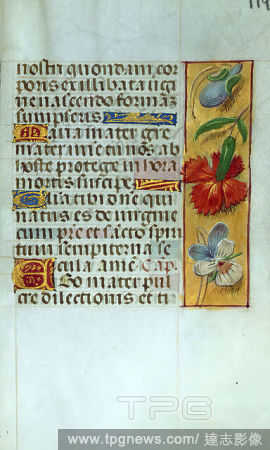 114
nostri quondam cor
poris ex illibata vigi
ne nascendo formam
sumpseris
Maria mater gre
mater mie tu nos ab
hoste protege in hora
mortis suscipe
Gloria tibi dne qui
natus es de virgine
cum pre et sancto spiri
tum sempiterna se
cula amē Cap.
Ego mater pul
cre dilectionis et ti
TPG
www.tpgnews.com/達志影像